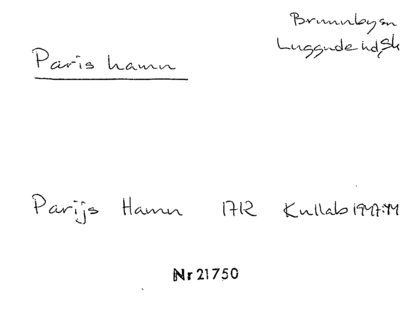 Brunnbysn
Luggude hd Sk
Paris hamn
Parijs Hamn 1712 Kullab 1947:44
Nr 21750